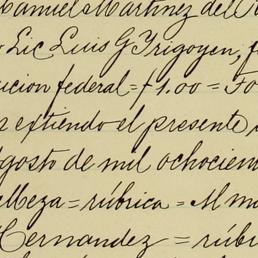 Manuel Martinez del
Lic Luis G Yrigoyen, f
ucion federal = f 1.00 =
r extiendo el presente
Agosto de mil ochocien
Meza = rúbrica = M m
Hernandez = rúbri